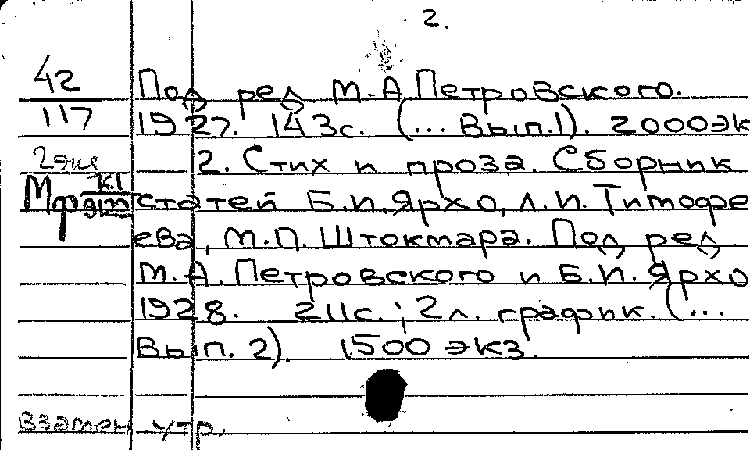 2.
42 Под ред М.А Петровского.
117 1927. 143с. (... Вып.1). 2000эк
2 экз — 2. Стих и проза. Сборник
Мф статей Б.И. Ярхо, Л.И. Тимофе
ева, М.П. Штокмара. Под ред
М.А. Петровского и Б.И. Ярхо
1928. 211с.; 2 л. график. (...
Вып. 2). 1500 экз.
Взамен утр.